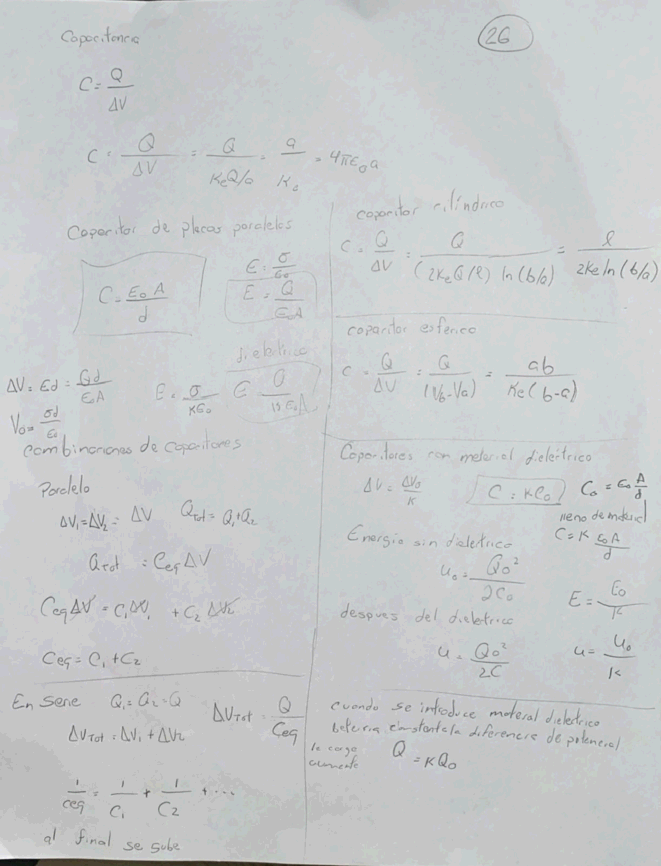 26
Capacitancia
C = Q/ΔV
C = Q/ΔV = Q/(KeQ/a) = a/Ke = 4πε₀a
Capacitor de placas paralelas
C = ε₀A/d
E = σ/ε₀
E = Q/ε₀A
dielectrico
ΔV = Ed = Qd/ε₀A
E = σ/Kε₀
V₀ = σd/ε₀
Combinaciones de capacitores
Paralelo
ΔV₁ = ΔV₂ = ΔV Q_Tot = Q₁+Q₂
Q_Tot = Ceq ΔV
Ceq ΔV = C₁ΔV₁ + C₂ΔV₂
Ceq = C₁ + C₂
En serie Q₁ = Q₂ = Q ΔV_Tot = Q/Ceq
ΔV_Tot = ΔV₁ + ΔV₂
1/Ceq = 1/C₁ + 1/C₂ + ...
al final se sube
capacitor cilíndrico
C = Q/ΔV = Q/((2KeQ/ℓ) ln(b/a)) = ℓ/(2Ke ln(b/a))
capacitor esferico
C = Q/ΔV = Q/(Vb-Va) = ab/(Ke(b-a))
Capacitores con material dieléctrico
ΔV = ΔV₀/K C = KC₀ C₀ = ε₀ A/d
lleno de material
C = K ε₀A/d
Energia sin dieletrico
U₀ = Q₀²/2C₀
E = E₀/K
despues del dieletrico
u = Q₀²/2C u = U₀/K
cuando se introduce material dielectrico
bateria constante la diferencia de potencial
la carga
aumente
Q = KQ₀